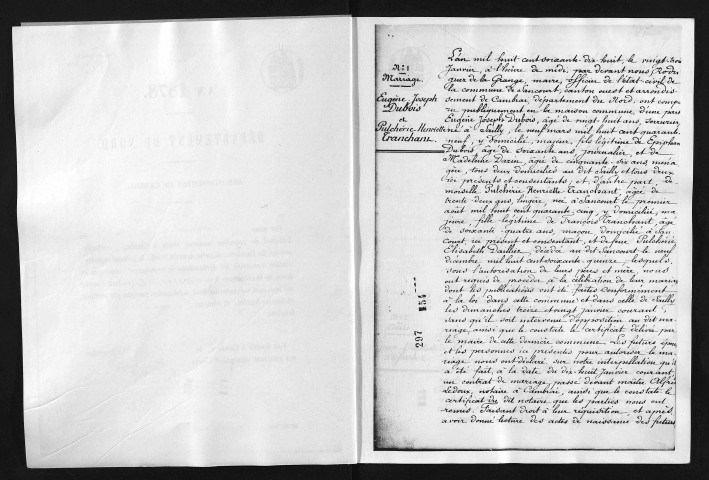 N° 1
Mariage.
Eugène Joseph
Dubois
et
Pulchérie Henriette
Tranchant
L'an mil huit cent soixante-dix-huit, le vingt-trois
Janvier, à l'heure de midi, par devant nous Rodri
guez de la Grange, maire, officier de l'état-civil de
la commune de Sancourt, canton ouest et arrondis
sement de Cambrai, département du Nord, ont compa
ru publiquement en la maison commune, d'une part,
Eugène Joseph Dubois, âgé de vingt-huit ans,
né à Sailly, le neuf mars mil huit cent quarante
neuf, y domicilié, majeur, fils légitime de
Dubois âgé de soixante ans, journalier, et de
Madeleine Dazin, âgée de cinquante-six ans, ména
gère, tous deux domiciliés au dit Sailly et tous deux
ici présents et consentants; et d'autre part, de
moiselle Pulchérie Henriette Tranchant, âgée de
trente deux ans, lingère, née à Sancourt le premier
août mil huit cent quarante-cinq, y domiciliée, ma
jeure, fille légitime de François Tranchant, âgé
de soixante-quatre ans, maçon, domicilié à San
court, ici présent et consentant, et de feue Pulchérie
Elisabeth Dallier, décédée au dit Sancourt le neuf
décembre mil huit cent soixante-quinze; lesquels,
sous l'autorisation de leurs pères et mère, nous
ont requis de procéder à la célébration de leur mariage
dont les publications ont été faites conformément
à la loi dans cette commune et dans celle de Sailly
les dimanches treize et vingt janvier courant,
sans qu'il soit intervenu d'opposition au dit ma
riage, ainsi que le constate le certificat délivré par
le maire de cette dernière commune. Les futurs époux
et les personnes ici présentes pour autoriser le ma
riage nous ont déclaré sur notre interpellation qu'il
a été fait, à la date du dix-huit Janvier courant,
un contrat de mariage, passé devant maître Alfred
Ledoux, notaire à Cambrai, ainsi que le constate le
certificat du dit notaire que les parties nous ont
remis. Faisant droit à leur réquisition, et après
avoir donné lecture des actes de naissance des futurs
297 154